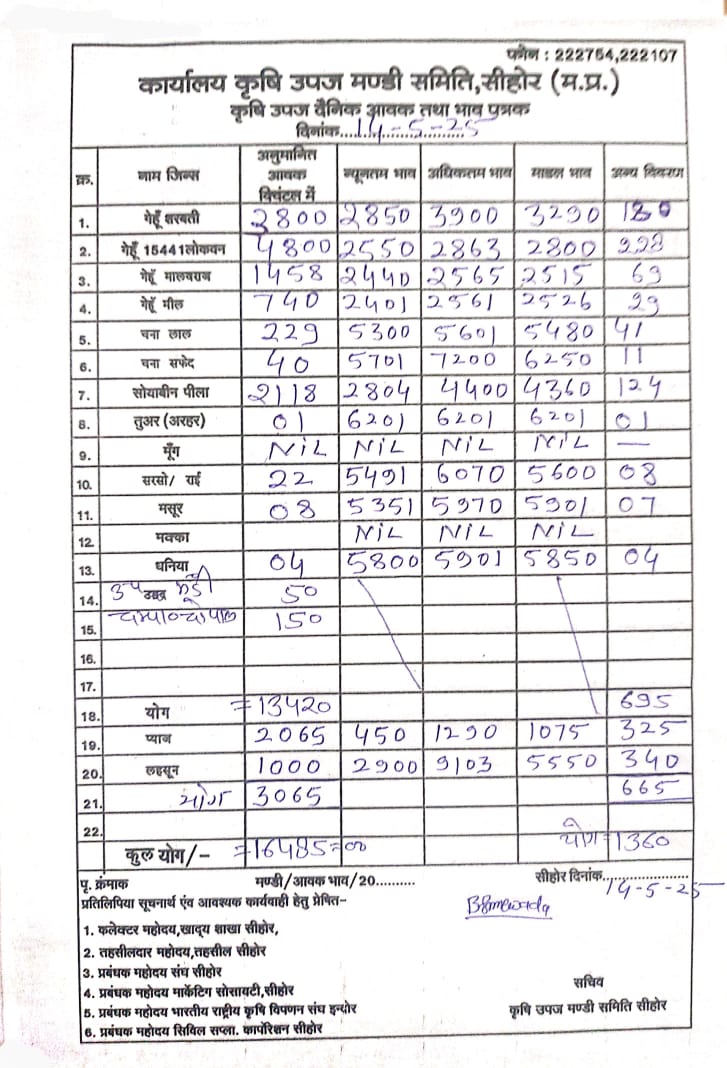 फोन : 222754,222107
कार्यालय कृषि उपज मण्डी समिति,सीहोर (म.प्र.)
कृषि उपज दैनिक आवक तथा भाव पत्रक
दिनांक....14-5-25
क्र. नाम जिन्स अनुमानित आवक क्विंटल में न्यूनतम भाव अधिकतम भाव माडल भाव अन्य विवरण
1. गेहूँ शरबती 3800 2850 3900 3290 180
2. गेहूँ 15441लोकवन 4800 2550 2863 2800 228
3. गेहूँ मालवराज 1458 2440 2565 2515 69
4. गेहूँ मील 740 2401 2561 2526 29
5. चना लाल 229 5300 5601 5480 41
6. चना सफेद 40 5701 7200 6250 11
7. सोयाबीन पीला 2118 2804 4400 4360 124
8. तुअर (अरहर) 01 6201 6201 6201 01
9. मूँग NiL NiL NiL NiL —
10. सरसो/ राई 22 5491 6070 5600 08
11. मसूर 08 5351 5970 5901 07
12. मक्का NiL NiL NiL
13. धनिया 04 5800 5901 5850 04
14. उड़द 50
15. 150
16.
17.
18. योग =13420 695
19. प्याज 2065 450 1290 1075 325
20. लहसून 1000 2900 9103 5550 340
21. योग 3065 665
22.
कुल योग/- =16485=00 योग=1360
पृ. क्रंमाक मण्डी/आवक भाव/20.......... सीहोर दिनांक....................14-5-25
प्रतिलिपिया सूचनार्थ एंव आवश्यक कार्यवाही हेतु प्रेषित-
1. कलेक्टर महोदय,खाद्य शाखा सीहोर,
2. तहसीलदार महोदय,तहसील सीहोर
3. प्रबंधक महोदय संघ सीहोर
4. प्रबंधक महोदय मार्केटिंग सोसायटी,सीहोर
5. प्रबंधक महोदय भारतीय राष्ट्रीय कृषि विपणन संघ इन्दोर
6. प्रबंधक महोदय सिविल सप्ला. कार्पोरेशन सीहोर
सचिव
कृषि उपज मण्डी समिति सीहोर